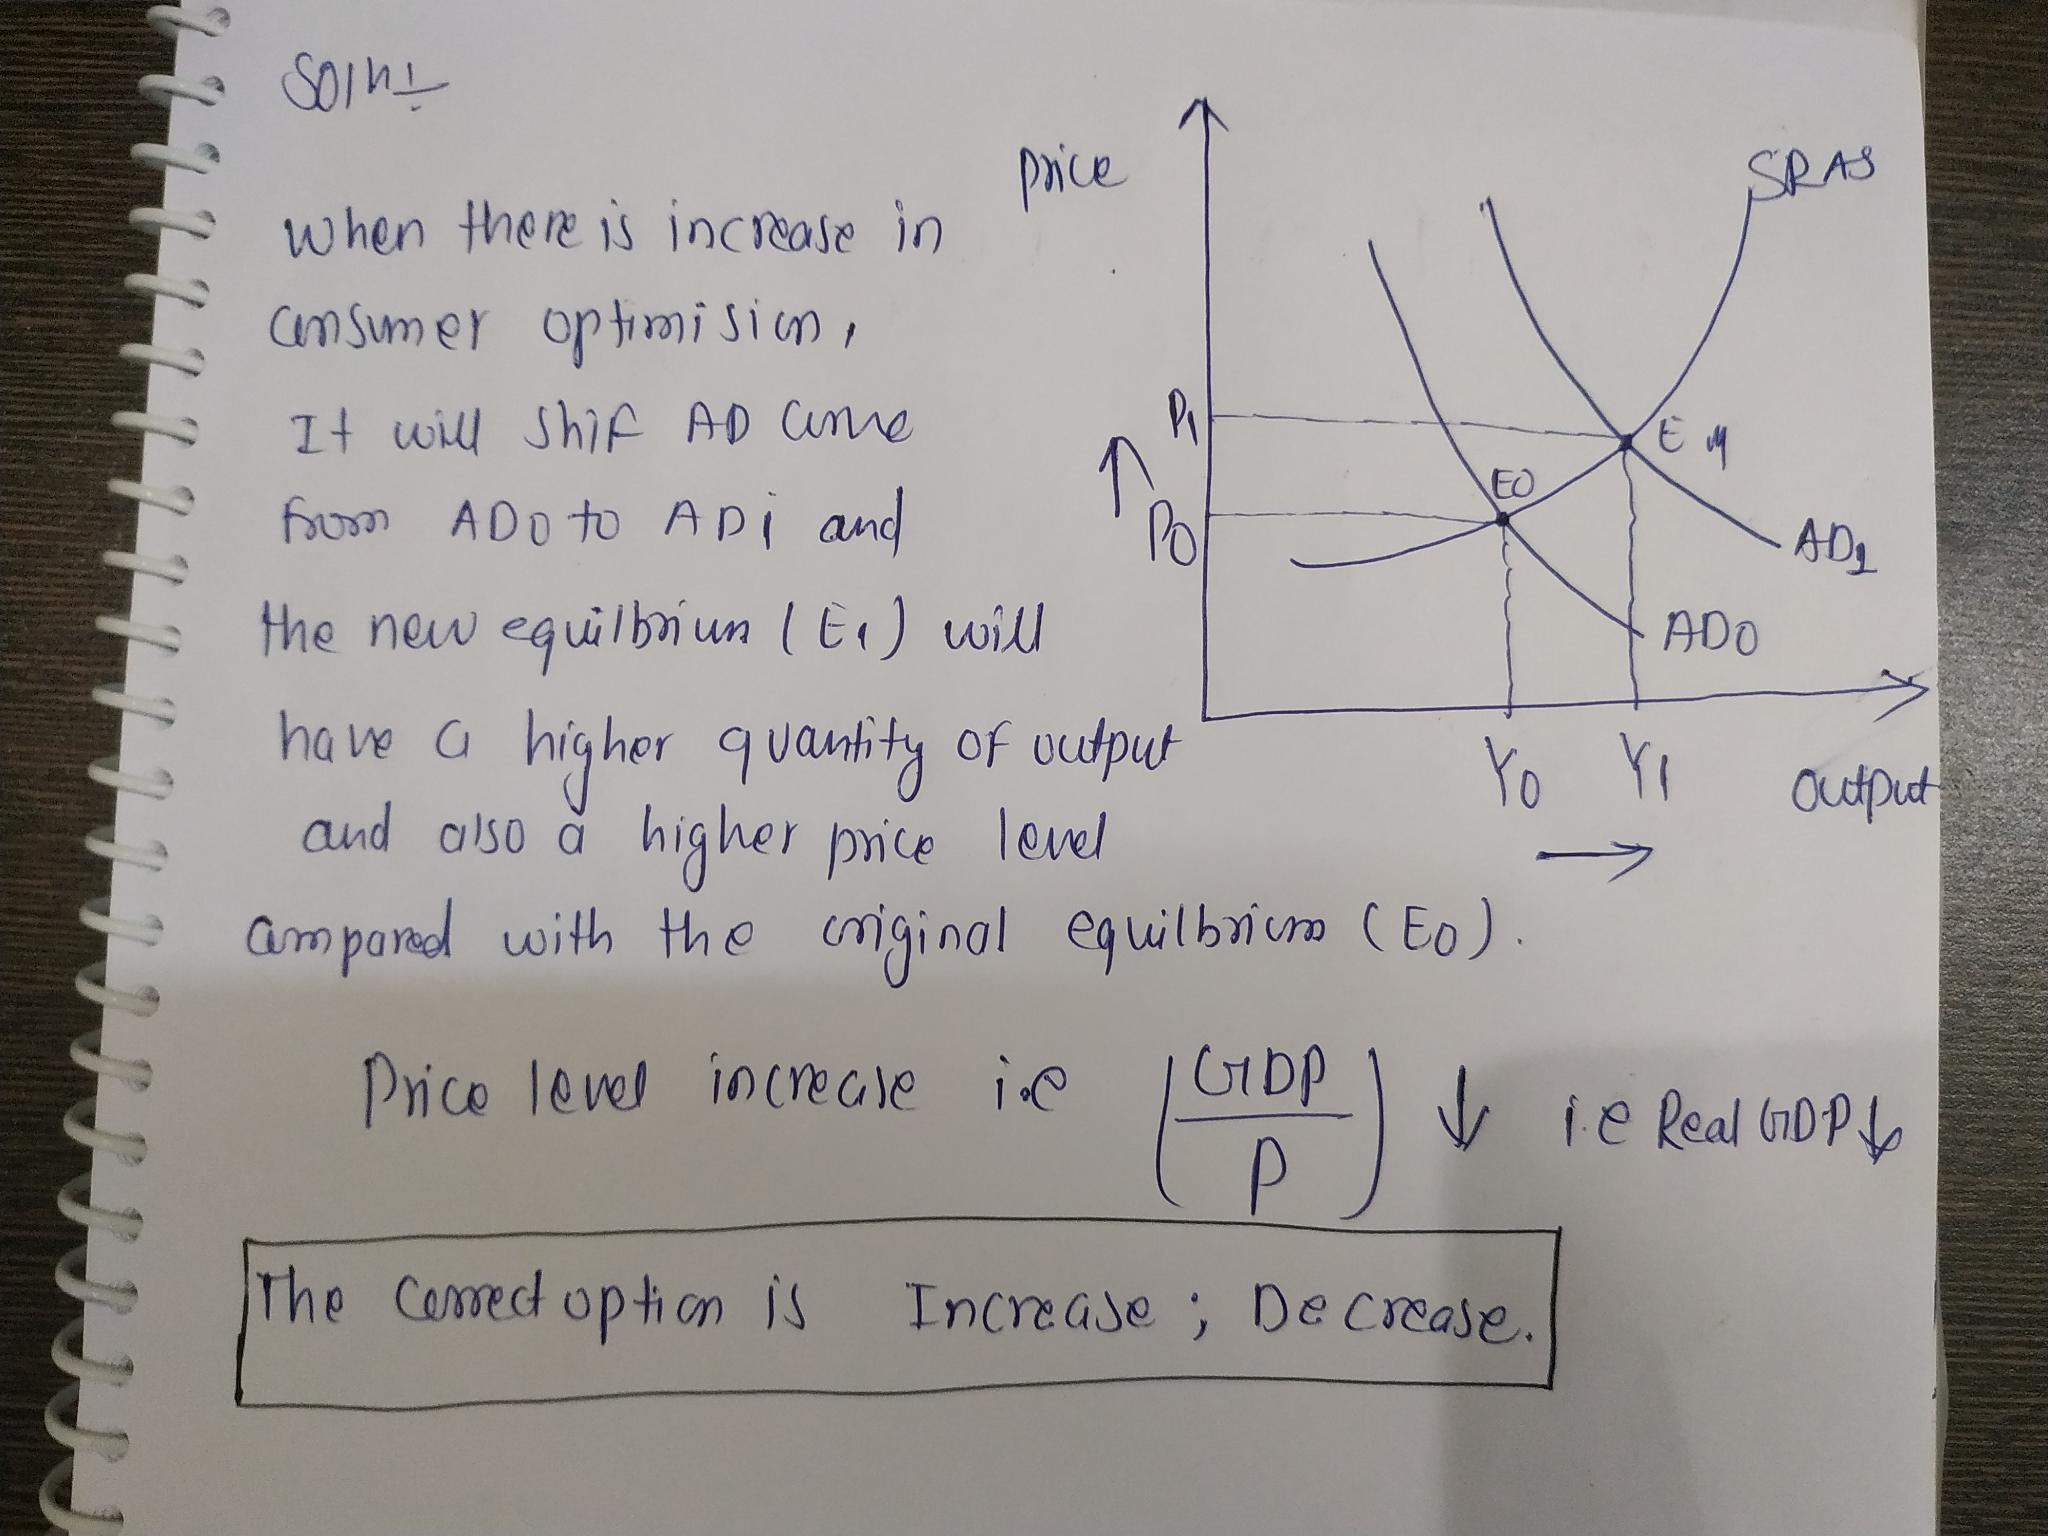 Soln:
When there is increase in
consumer optimision,
It will shif AD curve
from AD0 to AD1 and
the new equilbrium (E1) will
have a higher quantity of output
and also a higher price level
compared with the original equilbrium (E0).
Price level increase i.e (GDP/P) ↓ i.e Real GDP ↓
The correct option is Increase ; Decrease.
price
SRAS
P1
E
E0
P0
AD1
AD0
Y0 Y1 output